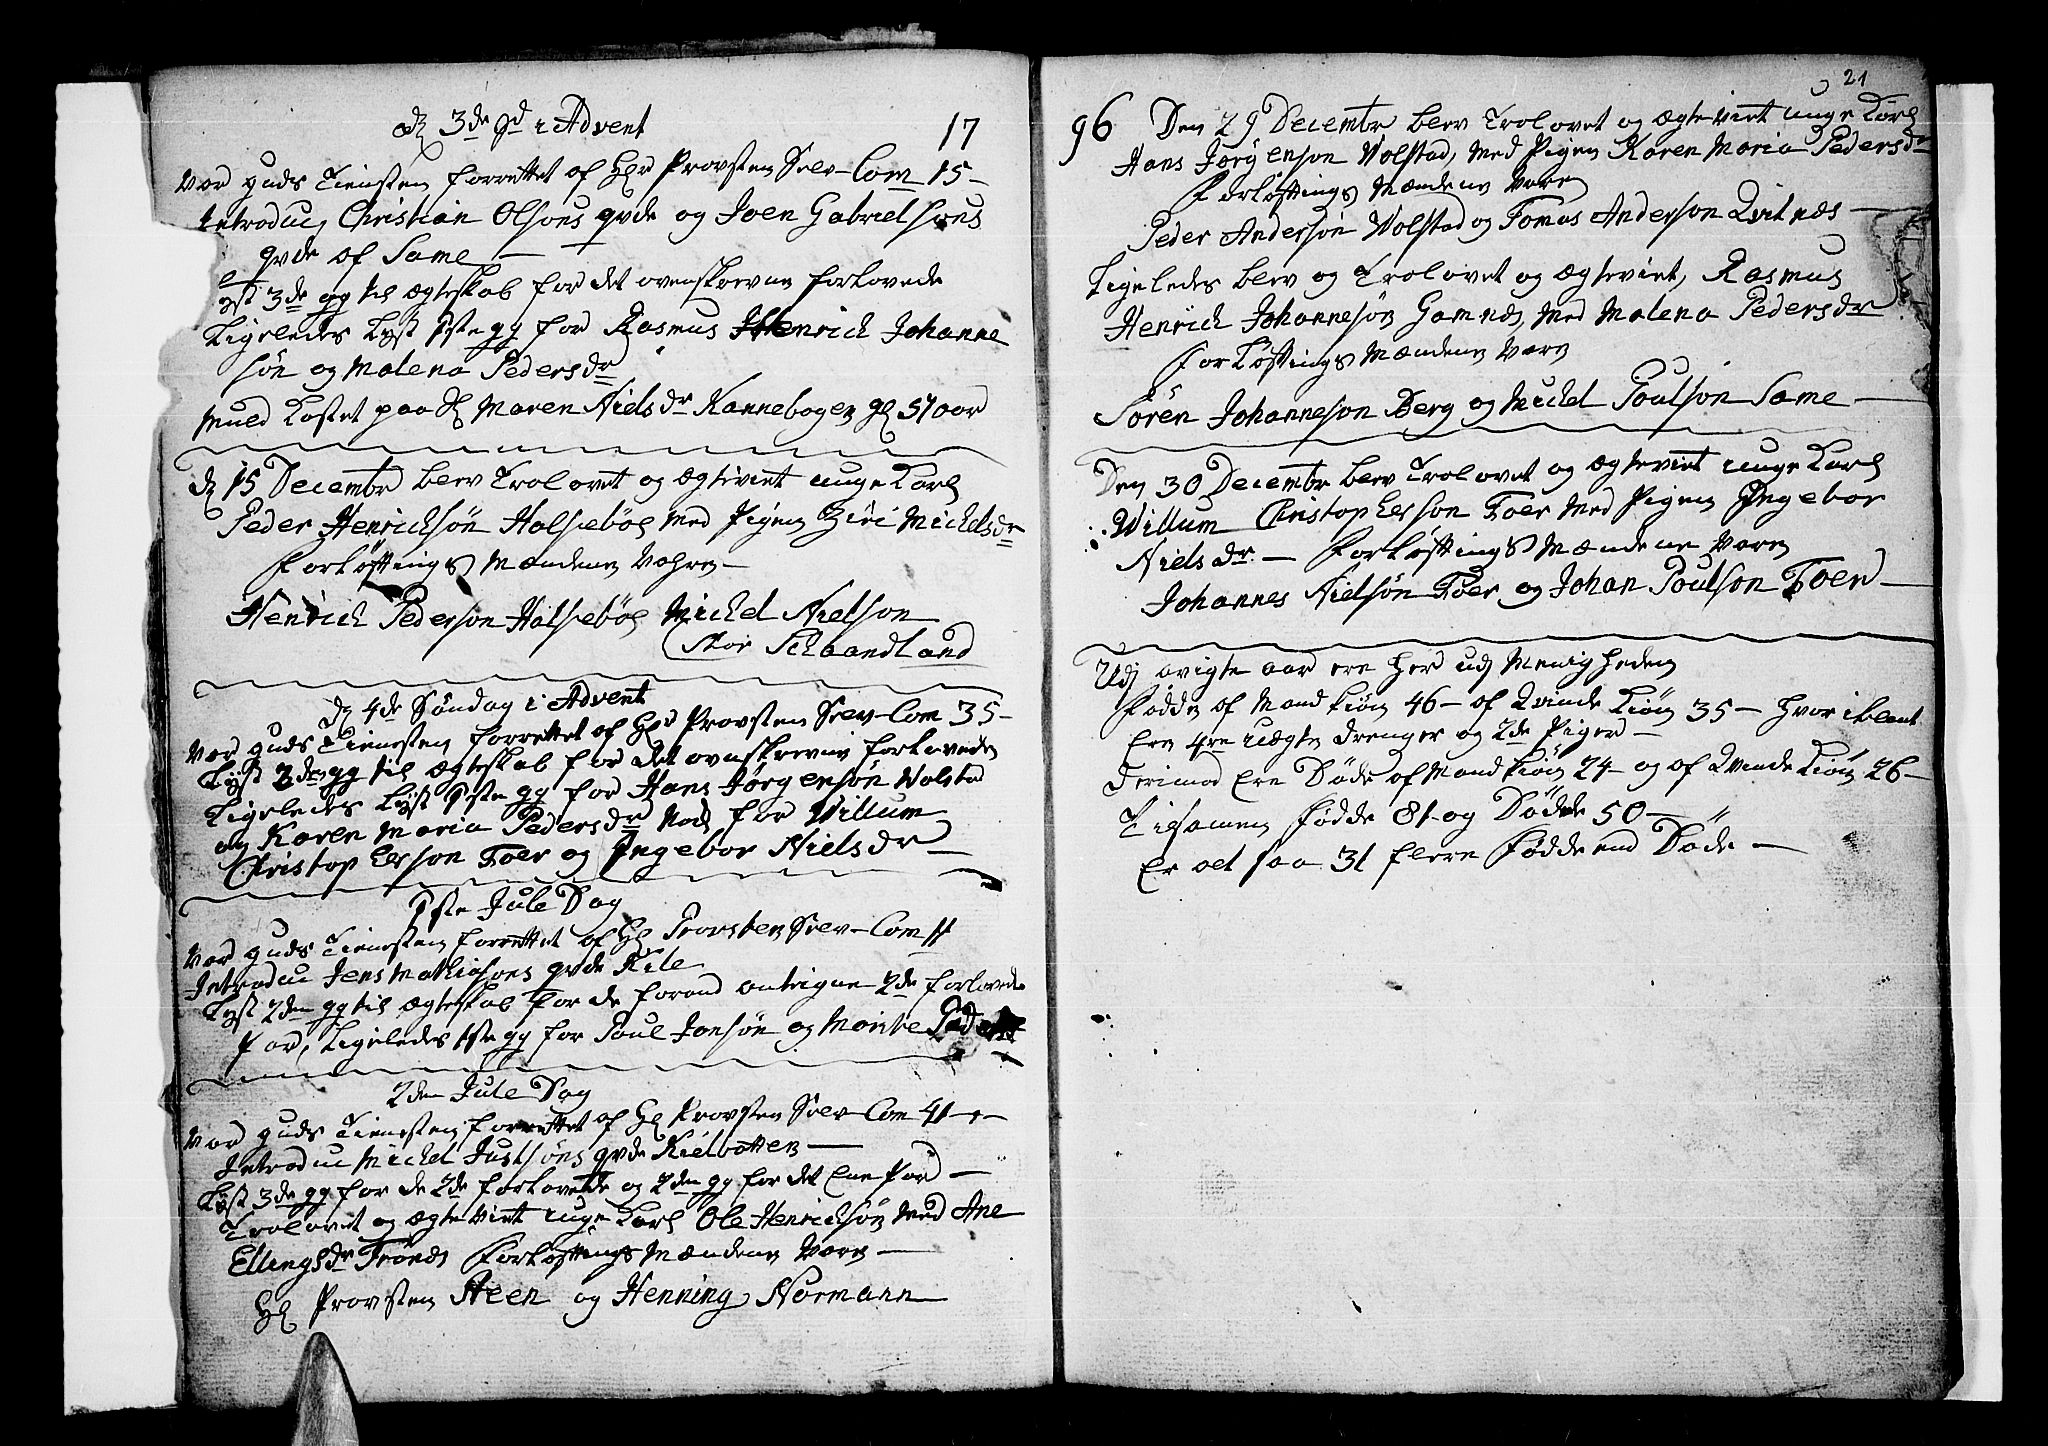 d 3de Sd i Advent 17
Var guds Tienesten forrettet af Hr Provsten Selv - Com 15 -
Introduc, Christian Olsøns qvde og Joen Gabrielsøns
qvde af Same -
Lyst 3de gg til ægteskab for det ovenskrevne forlovede
Ligeledes Lyst 1ste gg for Rasmus Henrich Johanne
søn og Malena Pedersdr
Muld Kastet paa Maren Nielsdr Kannebogen gl 57 aar
d 15 Decembr blev Trolovet og ægteviet unge Karl
Peder Henrichsøn Halsebøe med Pigen Ziri Michelsdr
Forløftings Mændene Vahre -
Henrich Pederson Halsebøe Michel Nielson
Stor Schaandland
d 4de Søndag i Advent
Var guds Tienesten forrettet af Hr Provsten Selv - Com 35 -
Lyst 2den gg til ægteskab for det ovenskrevne forlovede
Ligeledes Lyst 1ste gg for Hans Jørgensøn Volstad
og Karen Maria Pedersdr Nok for Willum
Christophersøn Foer og Ingebor Nielsdr -
1ste Jule Dag
Var guds Tienesten forrettet af Hr Provsten Selv - Com 11
Introduc Jens Mathiasøns qvde Kile
Lyst 2den gg til ægteskab for de forand antegne 2de forlovede
Par, Ligeledes 1ste gg for Poul Jonsøn og Marite
2den Jule Dag
Var guds Tienesten forrettet af Hr Provsten Selv - Com 41 -
Introduc Michel Justsøns qvde Kielbotten -
Lyst 3de gg for de 2de forlovede og 2den gg for det Ene Par -
Trolovet og ægteviet unge Karl Ole Henrichsøn Med Ane
Ellingsdr Trones Forløftings Mændene Vare -
Hr Provsten Steen og Henning Normann
21
96 Den 29 Decembr blev Trolovet og ægteviet unge Karl
Hans Jørgenson Volstad, Med Pigen Karen Maria Pedersdr
Forløftings Mændene Vare
Peder Andersøn Volstad og Tomas Anderson Qvitnæs -
Ligeledes blev og Trolovet og ægteviet, Rasmus
Henrich Johannesøn Gamnæs, Med Malena Pedersdr
Forløftings Mændene Vare
Søren Johanneson Berg og Michel Poulson Same -
Den 30 Decembr blev Trolovet og ægteviet unge Karl
Willum Christopherson Foer Med Pigen Ingebor
Nielsdr - Forløftings Mændene Vare
Johannes Nielsøn Foer og Johan Poulson Foer -
Udj avigte aar ere her udj Menigheden
Fødde af Mand Kiøn 46 - af Qvinde Kiøn 35 - hvoriblant
Ere 4re uægte Drenger og 2de Piger -
derimod Ere Døde af Mand Kiøn 24 - og af Qvinde Kiøn 26 -
Tilsamen Fødde 81 - og Døde 50 -
Er alt saa 31 flere Fødde end Døde -